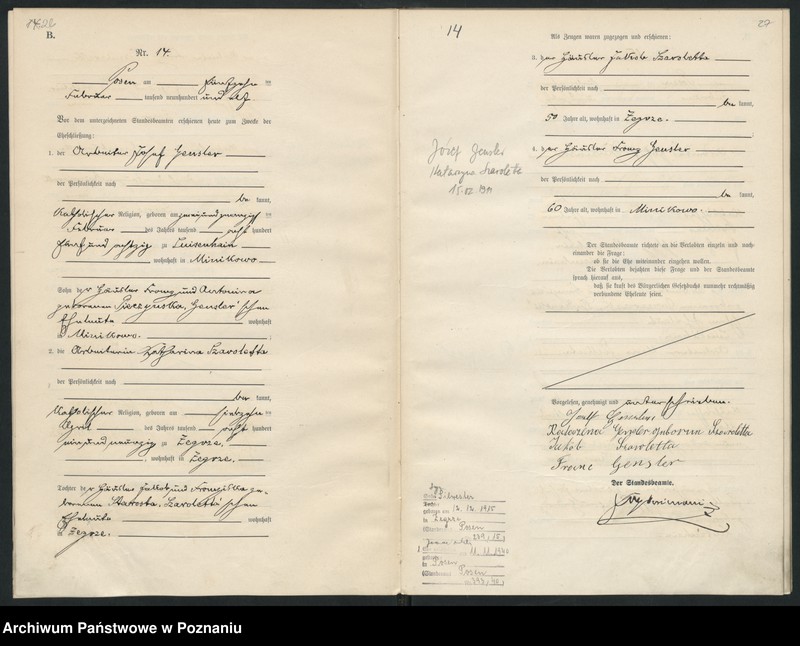 B.
Nr. 14.
Posen am fünfzehn ten
Februar tausend neunhundert und elf
Vor dem unterzeichneten Standesbeamten erschienen heute zum Zwecke der
Eheschließung:
1. der Arbeiter Josef Gensler
der Persönlichkeit nach
be kannt,
katholischer Religion, geboren am zweiundzwanzig ten
Februar des Jahres tausend acht hundert
fünf und achtzig zu Luisenhain
wohnhaft in Minikowo
Sohn der Häusler Franz und Antonina
geborenen Gensler'schen
Eheleute wohnhaft
in Minikowo.
2. die Arbeiterin Katharina Szaroletta
der Persönlichkeit nach
be kannt,
katholischer Religion, geboren am siebzehn ten
April des Jahres tausend acht hundert
ein und neunzig zu Zegrze.
wohnhaft in Zegrze.
Tochter der Häusler Jakob und Franziska ge-
borenen Starosta, Szaroletta'schen
Eheleute wohnhaft
in Zegrze.
14
Józef Gensler
Katarzyna Szaroletta
15.02.1911
geboren am 12.12.1915
in Zegrze
Posen
11.11.1940
Posen
Posen
27
Als Zeugen waren zugezogen und erschienen:
3. der Häusler Jakob Szaroletta
der Persönlichkeit nach
be kannt,
50 Jahre alt, wohnhaft in Zegrze.
4. der Häusler Franz Gensler
der Persönlichkeit nach
be kannt,
60 Jahre alt, wohnhaft in Minikowo.
Der Standesbeamte richtete an die Verlobten einzeln und nach-
einander die Frage:
ob sie die Ehe miteinander eingehen wollen.
Die Verlobten bejahten diese Frage und der Standesbeamte
sprach hierauf aus,
daß sie kraft des Bürgerlichen Gesetzbuchs nunmehr rechtmäßig
verbundene Eheleute seien.
Vorgelesen, genehmigt und unterschrieben.
Josef Gensler
Katarzina Gensler geborene Szaroletta
Jakób Szaroletta
Franc Gensler
Der Standesbeamte.
Archiwum Państwowe w Poznaniu